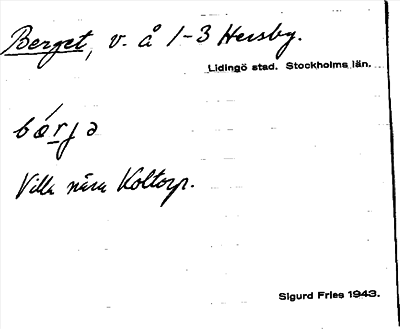 Berget, v. å 1-3 Hersby.
Lidingö stad. Stockholms län.
Villa nära Koltorp.
Sigurd Fries 1943.